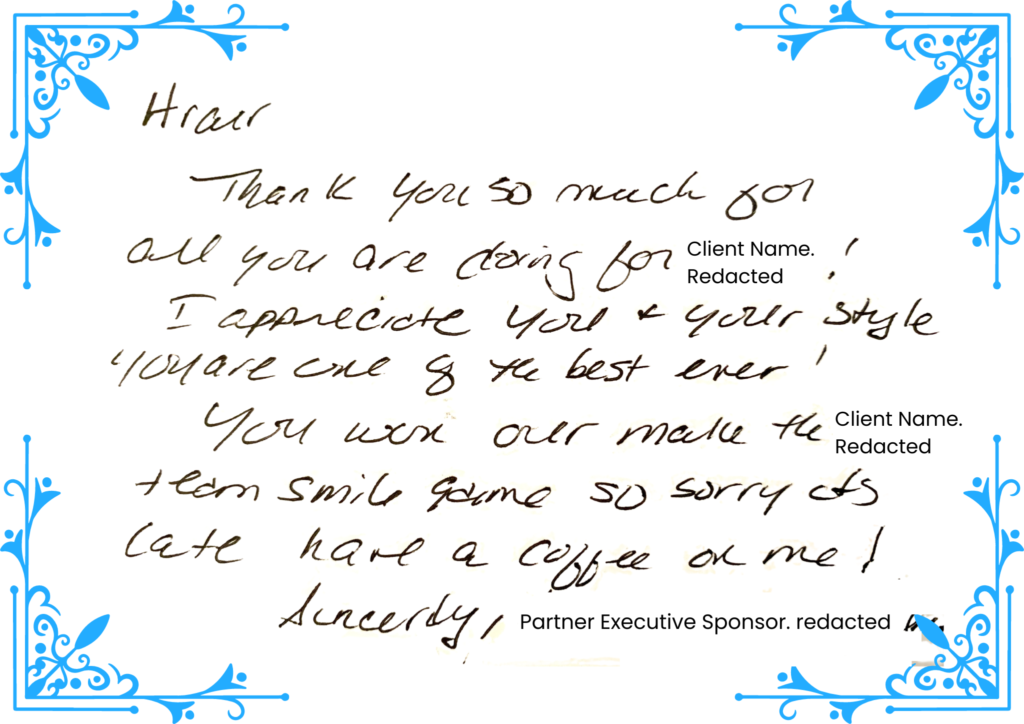 Hrair
Thank you so much for
all you are doing for Client Name. Redacted !
I appreciate you + your style
you are one of the best ever!
You won our make the Client Name. Redacted
team smile game so sorry its
late have a coffee on me!
Sincerely, Partner Executive Sponsor. redacted